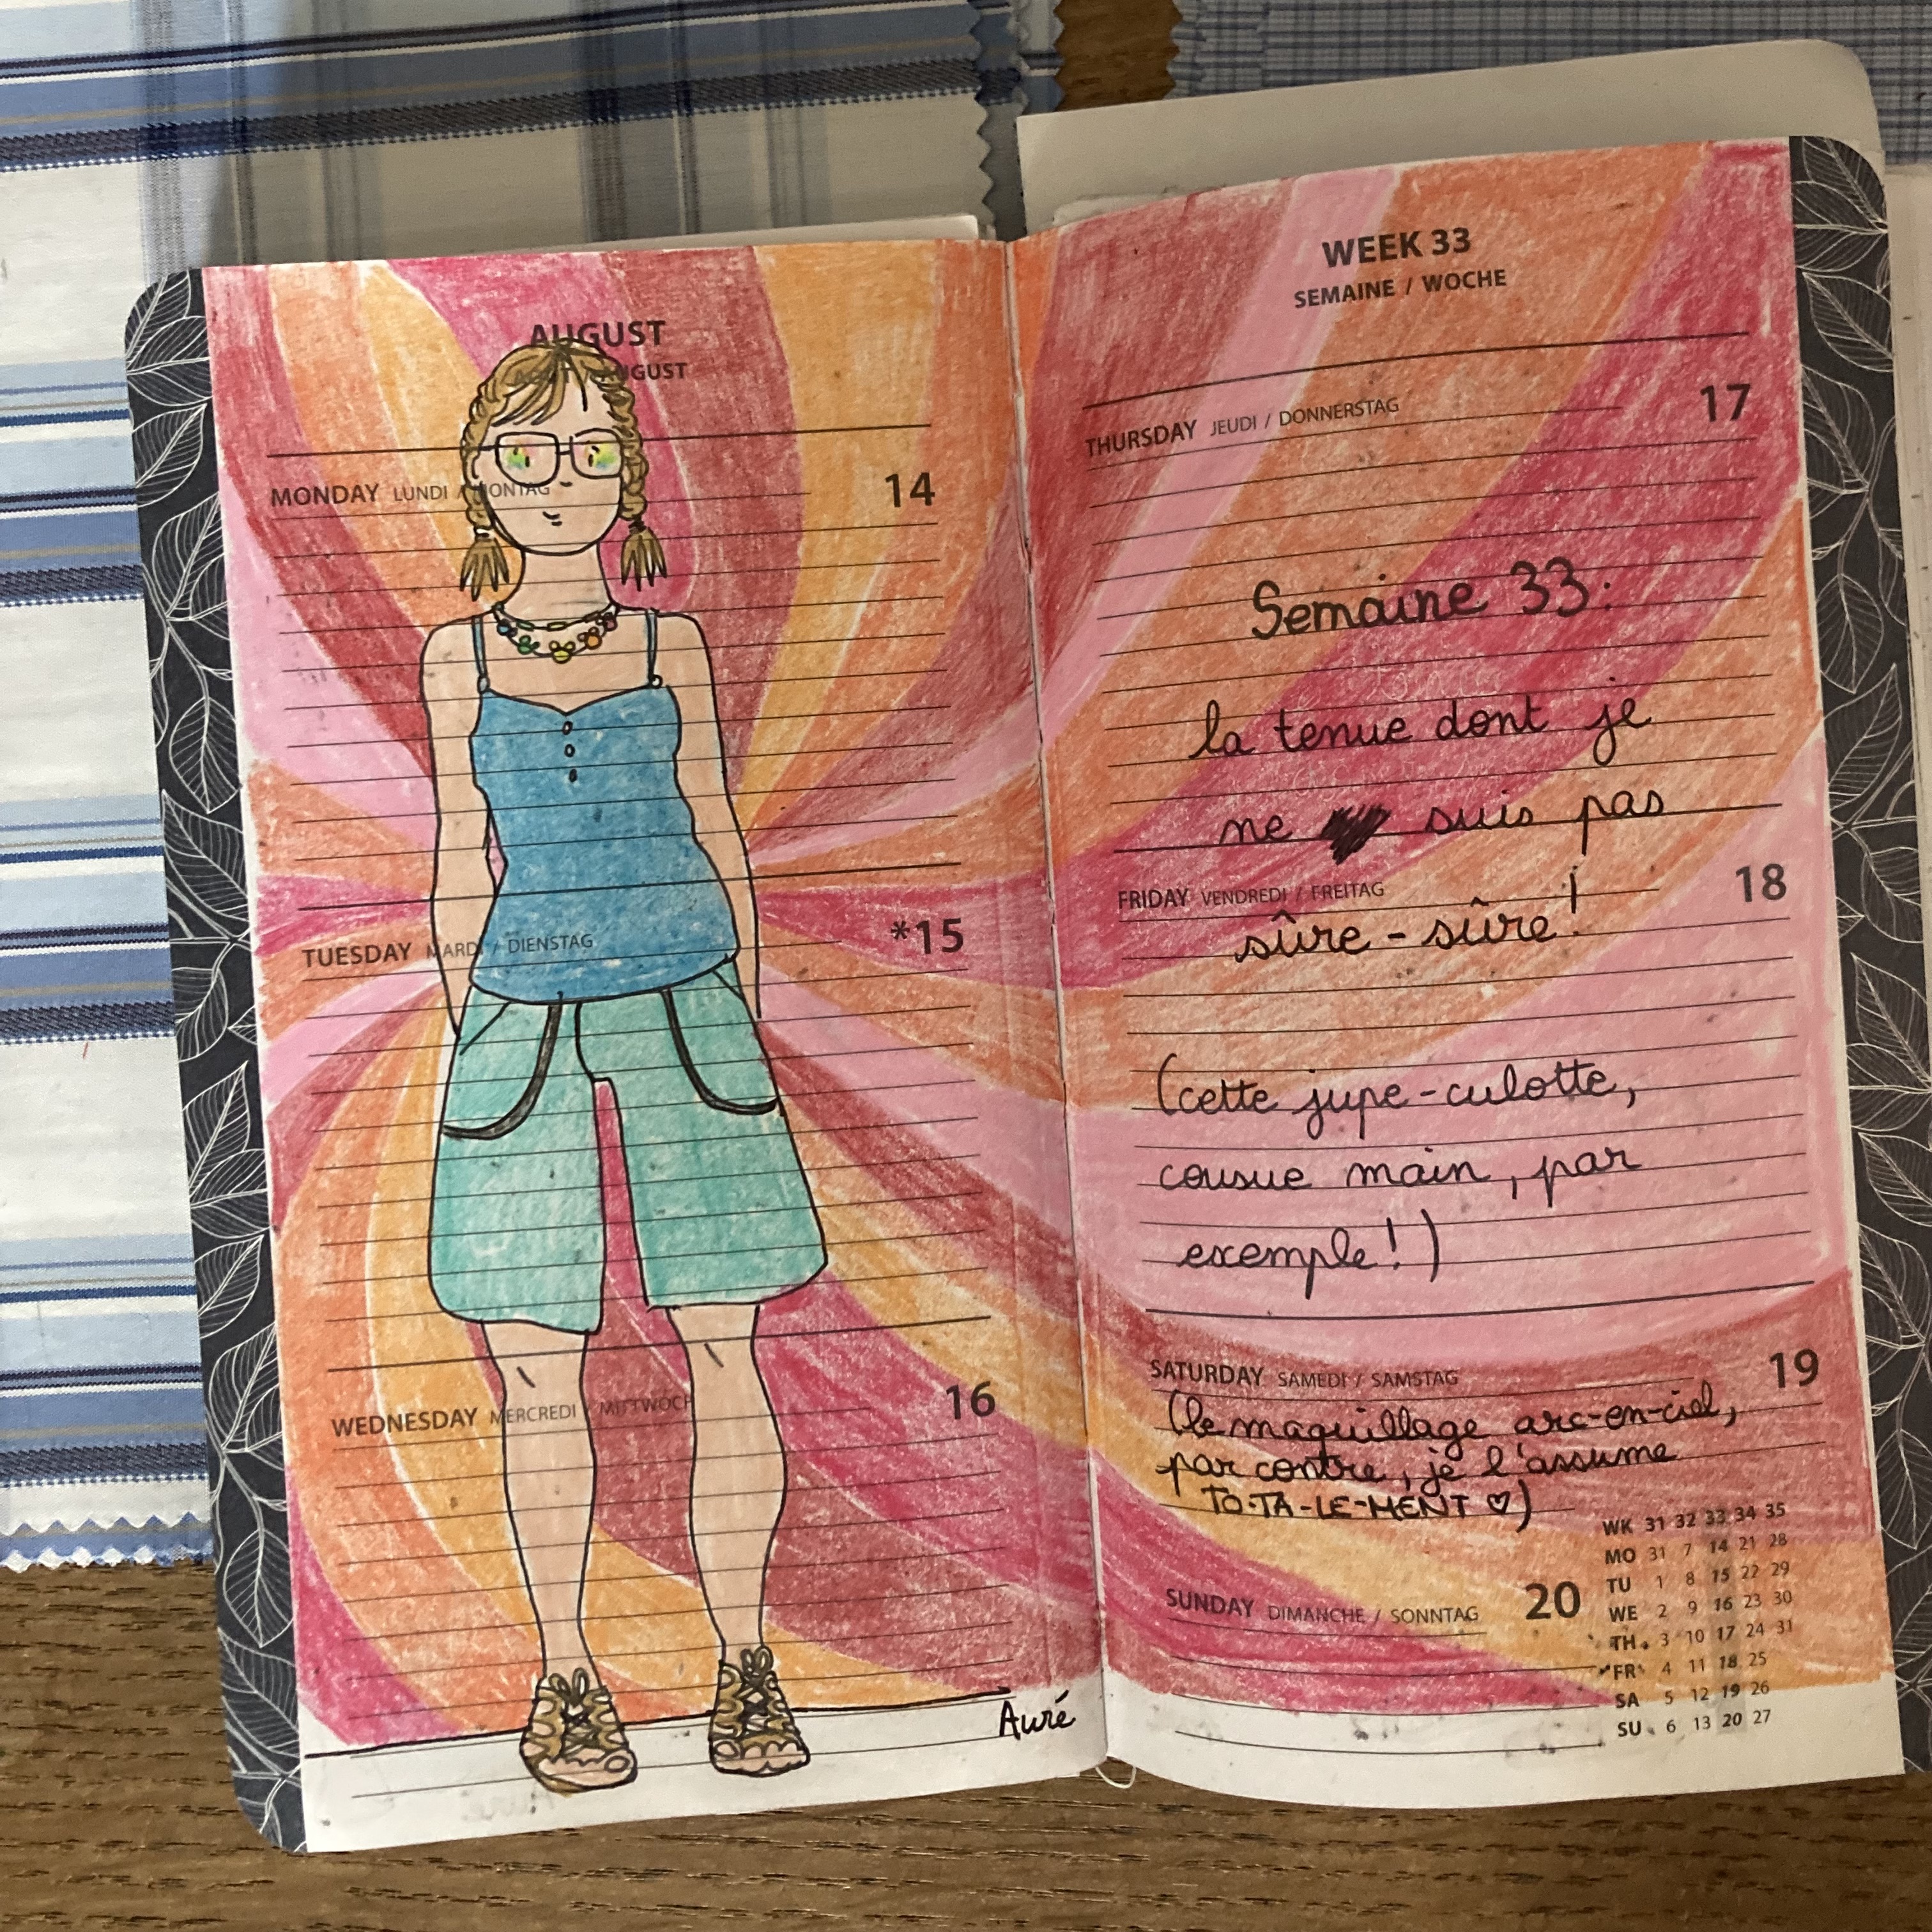 AUGUST
MONDAY LUNDI / MONTAG 14
TUESDAY MARDI / DIENSTAG *15
WEDNESDAY MERCREDI / MITTWOCH 16
Auré
WEEK 33
SEMAINE / WOCHE
THURSDAY JEUDI / DONNERSTAG 17
Semaine 33:
la tenue dont je
ne suis pas
FRIDAY VENDREDI / FREITAG 18
sûre-sûre!
(cette jupe-culotte,
cousue main, par
exemple!)
SATURDAY SAMEDI / SAMSTAG 19
(le maquillage arc-en-ciel,
par contre, je l'assume
TO-TA-LE-MENT ♡)
SUNDAY DIMANCHE / SONNTAG 20
WK 31 32 33 34 35
MO 31 7 14 21 28
TU 1 8 15 22 29
WE 2 9 16 23 30
TH 3 10 17 24 31
FR 4 11 18 25
SA 5 12 19 26
SU 6 13 20 27